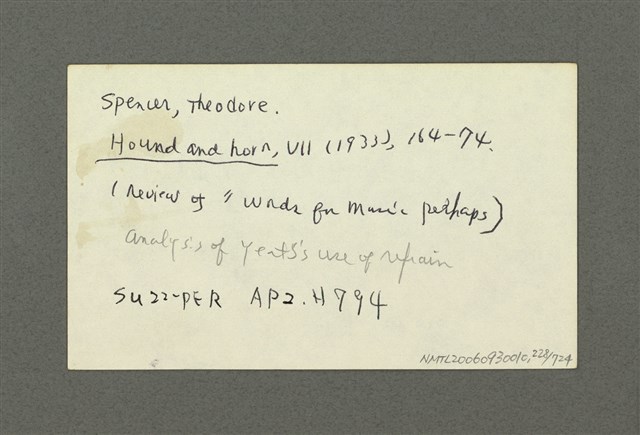 Spencer, Theodore.
Hound and horn, VII (1933), 164-74.
(Review of "Words for Music perhaps)
Analysis of Yeats's use of refrain
SUZZ-PER AP2.H794
NMTL20060930010,228/724